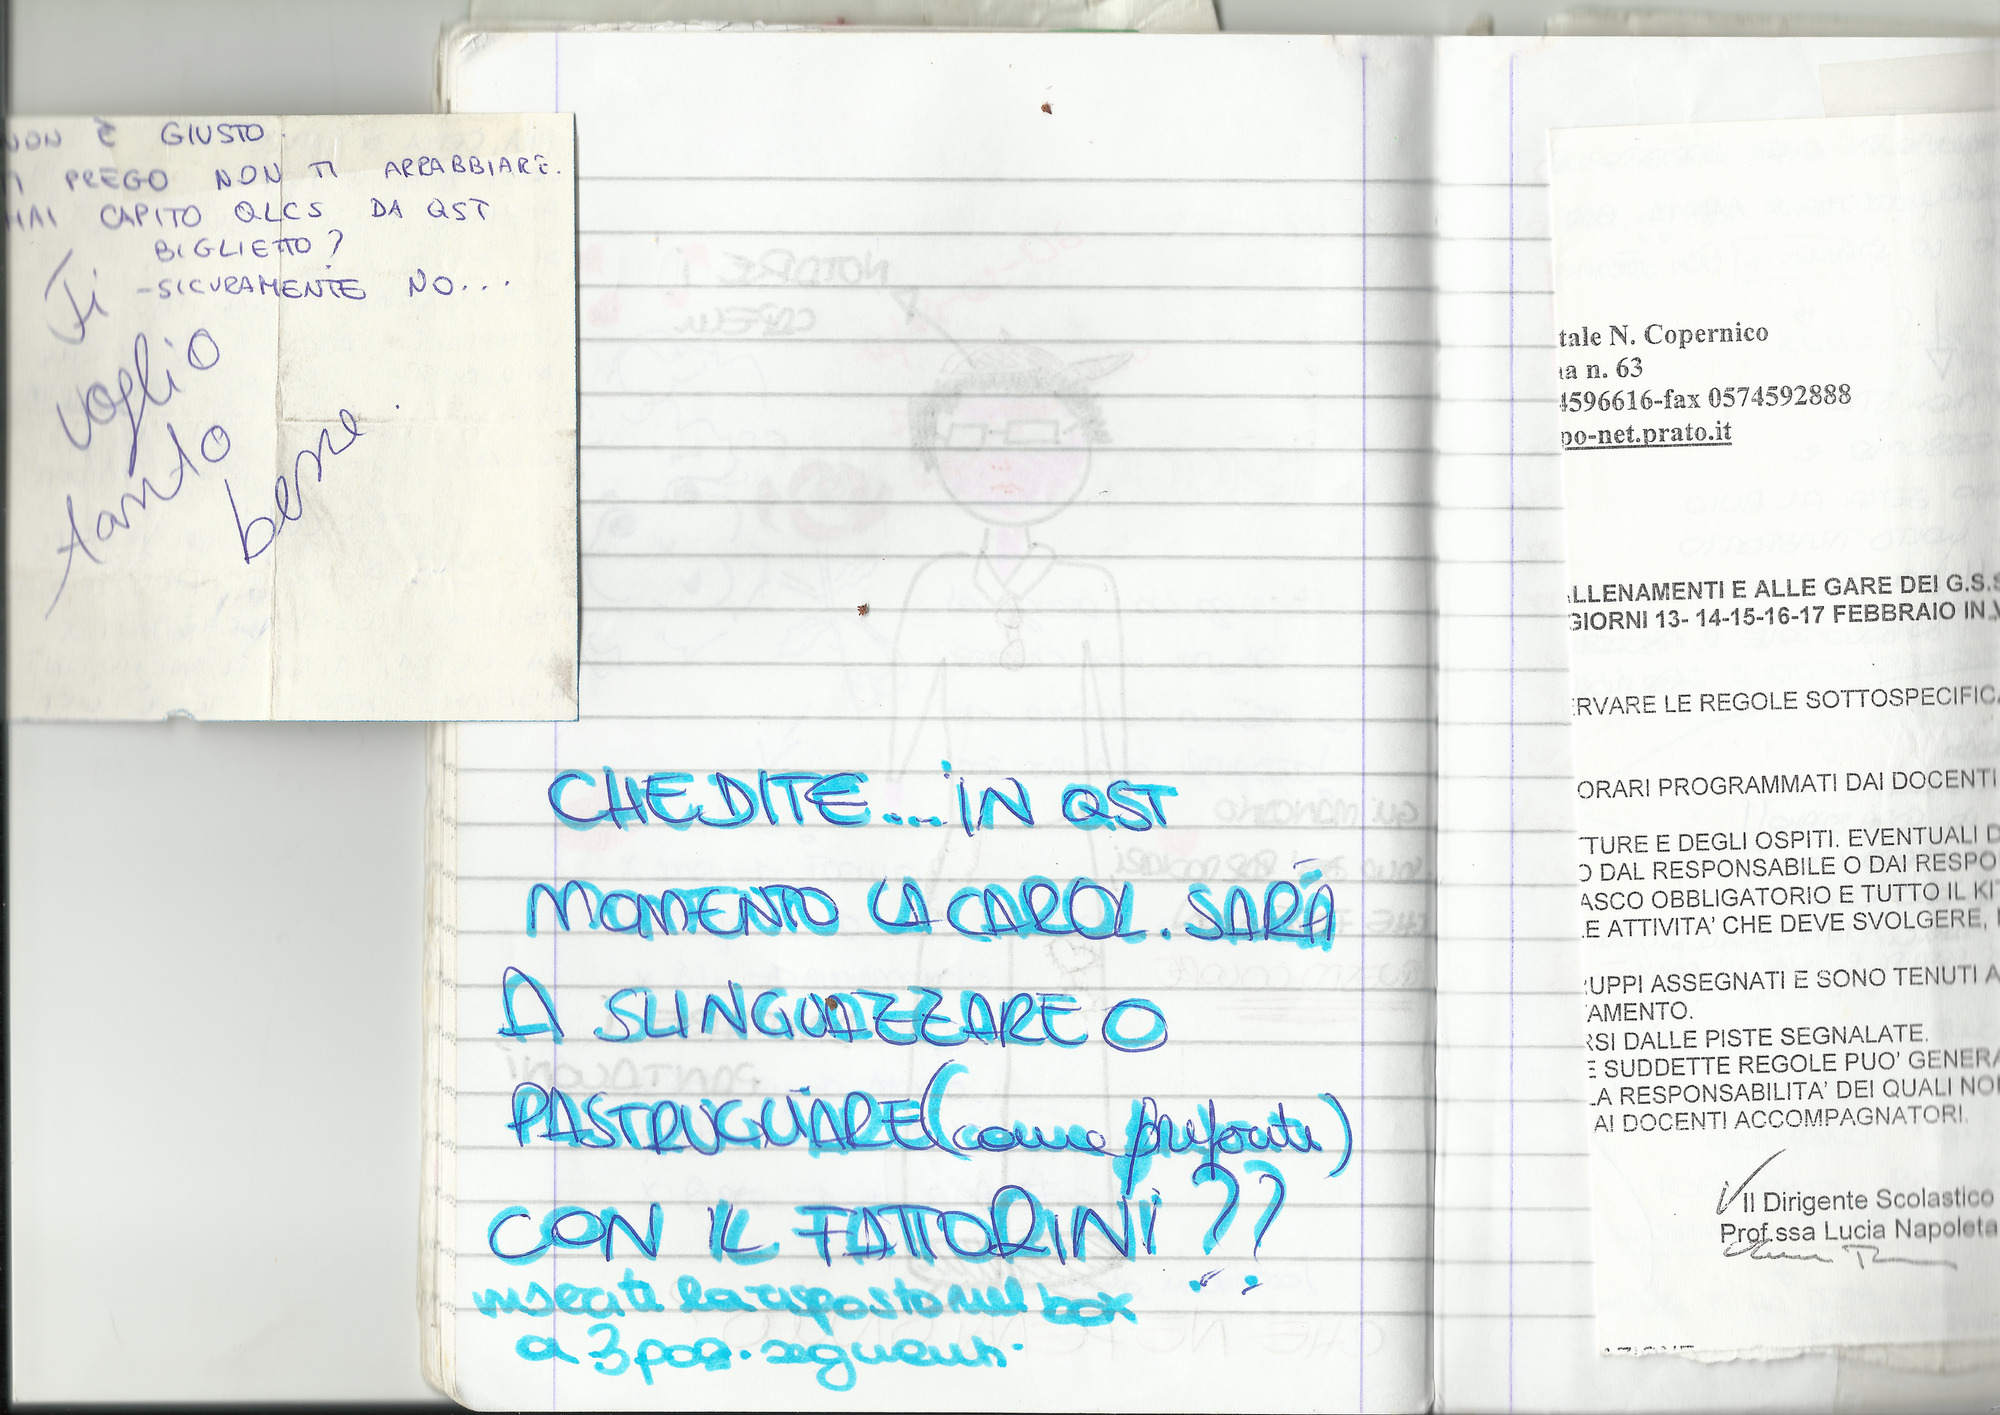 NON È GIUSTO.
TI PREGO NON TI ARRABBIARE.
HAI CAPITO QLCS DA QST
BIGLIETTO?
-SICURAMENTE NO...
Ti
voglio
tanto
bene.
CHE DITE...IN QST
MOMENTO LA CAROL. SARÀ
A SLINGUAZZARE O
PASTRUGLIARE (come preferite)
CON IL FATTORINI??
inserite la risposta nel box
a 3 pag. seguenti.
tale N. Copernico
na n. 63
4596616-fax 0574592888
po-net.prato.it
LLENAMENTI E ALLE GARE DEI G.S.S
GIORNI 13- 14-15-16-17 FEBBRAIO IN V
ERVARE LE REGOLE SOTTOSPECIFICA
ORARI PROGRAMMATI DAI DOCENTI
TTURE E DEGLI OSPITI. EVENTUALI D
O DAL RESPONSABILE O DAI RESPO
ASCO OBBLIGATORIO E TUTTO IL KIT
LE ATTIVITA' CHE DEVE SVOLGERE,
UPPI ASSEGNATI E SONO TENUTI A
TAMENTO.
RSI DALLE PISTE SEGNALATE.
E SUDDETTE REGOLE PUO' GENERA
LA RESPONSABILITA' DEI QUALI NON
AI DOCENTI ACCOMPAGNATORI.
Il Dirigente Scolastico
Prof.ssa Lucia Napoleta